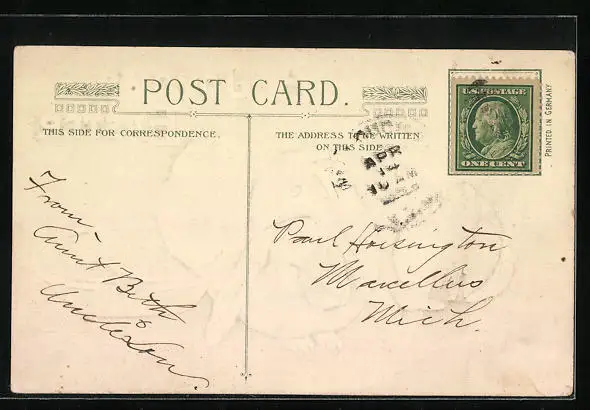 POST CARD.
THIS SIDE FOR CORRESPONDENCE.
THE ADDRESS TO BE WRITTEN
ON THIS SIDE
U.S. POSTAGE
ONE CENT
PRINTED IN GERMANY
APR
14
10 AM
From
Aunt Beth
Pearl Hoisington
Marcellus
Mich.